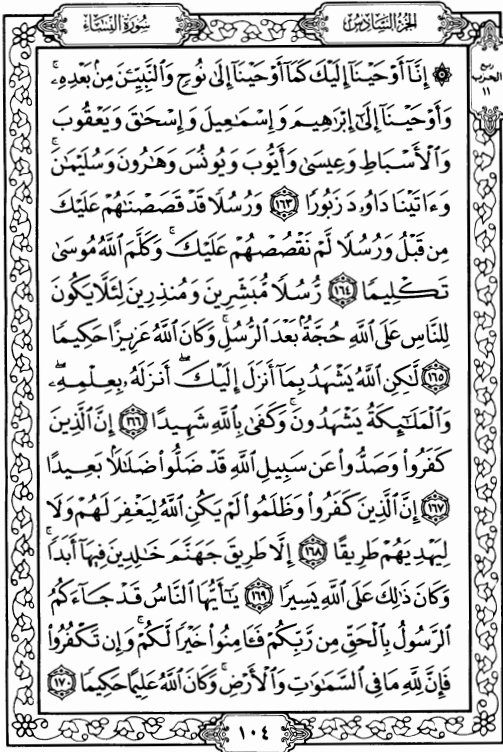 سورة النساء
الجزء السادس
ربع
الحزب
١١
۞ إِنَّآ أَوْحَيْنَآ إِلَيْكَ كَمَآ أَوْحَيْنَآ إِلَىٰ نُوحٍ وَٱلنَّبِيِّـۧنَ مِنۢ بَعْدِهِۦ ۚ
وَأَوْحَيْنَآ إِلَىٰٓ إِبْرَٰهِيمَ وَإِسْمَٰعِيلَ وَإِسْحَٰقَ وَيَعْقُوبَ
وَٱلْأَسْبَاطِ وَعِيسَىٰ وَأَيُّوبَ وَيُونُسَ وَهَٰرُونَ وَسُلَيْمَٰنَ ۚ
وَءَاتَيْنَا دَاوُۥدَ زَبُورًا ١٦٣ وَرُسُلًا قَدْ قَصَصْنَٰهُمْ عَلَيْكَ
مِن قَبْلُ وَرُسُلًا لَّمْ نَقْصُصْهُمْ عَلَيْكَ ۚ وَكَلَّمَ ٱللَّهُ مُوسَىٰ
تَكْلِيمًا ١٦٤ رُّسُلًا مُّبَشِّرِينَ وَمُنذِرِينَ لِئَلَّا يَكُونَ
لِلنَّاسِ عَلَى ٱللَّهِ حُجَّةٌۢ بَعْدَ ٱلرُّسُلِ ۚ وَكَانَ ٱللَّهُ عَزِيزًا حَكِيمًا
١٦٥ لَّٰكِنِ ٱللَّهُ يَشْهَدُ بِمَآ أَنزَلَ إِلَيْكَ ۖ أَنزَلَهُۥ بِعِلْمِهِۦ ۖ
وَٱلْمَلَٰٓئِكَةُ يَشْهَدُونَ ۚ وَكَفَىٰ بِٱللَّهِ شَهِيدًا ١٦٦ إِنَّ ٱلَّذِينَ
كَفَرُوا۟ وَصَدُّوا۟ عَن سَبِيلِ ٱللَّهِ قَدْ ضَلُّوا۟ ضَلَٰلًۢا بَعِيدًا
١٦٧ إِنَّ ٱلَّذِينَ كَفَرُوا۟ وَظَلَمُوا۟ لَمْ يَكُنِ ٱللَّهُ لِيَغْفِرَ لَهُمْ وَلَا
لِيَهْدِيَهُمْ طَرِيقًا ١٦٨ إِلَّا طَرِيقَ جَهَنَّمَ خَٰلِدِينَ فِيهَآ أَبَدًا ۚ
وَكَانَ ذَٰلِكَ عَلَى ٱللَّهِ يَسِيرًا ١٦٩ يَٰٓأَيُّهَا ٱلنَّاسُ قَدْ جَآءَكُمُ
ٱلرَّسُولُ بِٱلْحَقِّ مِن رَّبِّكُمْ فَـَٔامِنُوا۟ خَيْرًا لَّكُمْ ۚ وَإِن تَكْفُرُوا۟
فَإِنَّ لِلَّهِ مَا فِى ٱلسَّمَٰوَٰتِ وَٱلْأَرْضِ ۚ وَكَانَ ٱللَّهُ عَلِيمًا حَكِيمًا ١٧٠
١٠٤